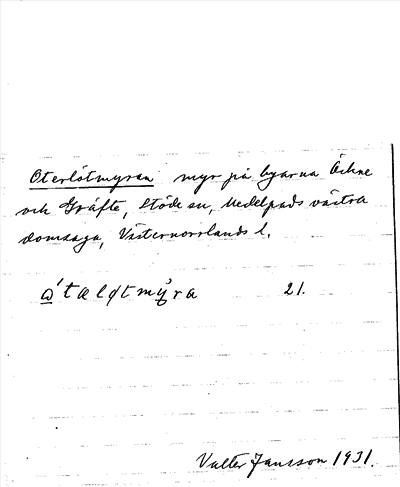 Oterlötmyran myr på byarna Öckne
och Gräfte, Stöde sn, Medelpads västra
domsaga, Västernorrlands l.
ώtalø̨tmỳ̨ra 21.
Valter Jansson 1931.